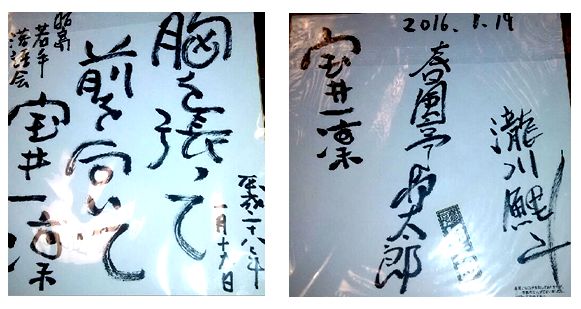 胸を張って
前を向いて
平成二十八年
一月十九日
若手
講談会
宝井一凜
2016.1.19
瀧川鯉斗
春風亭昇太郎
宝井一凜